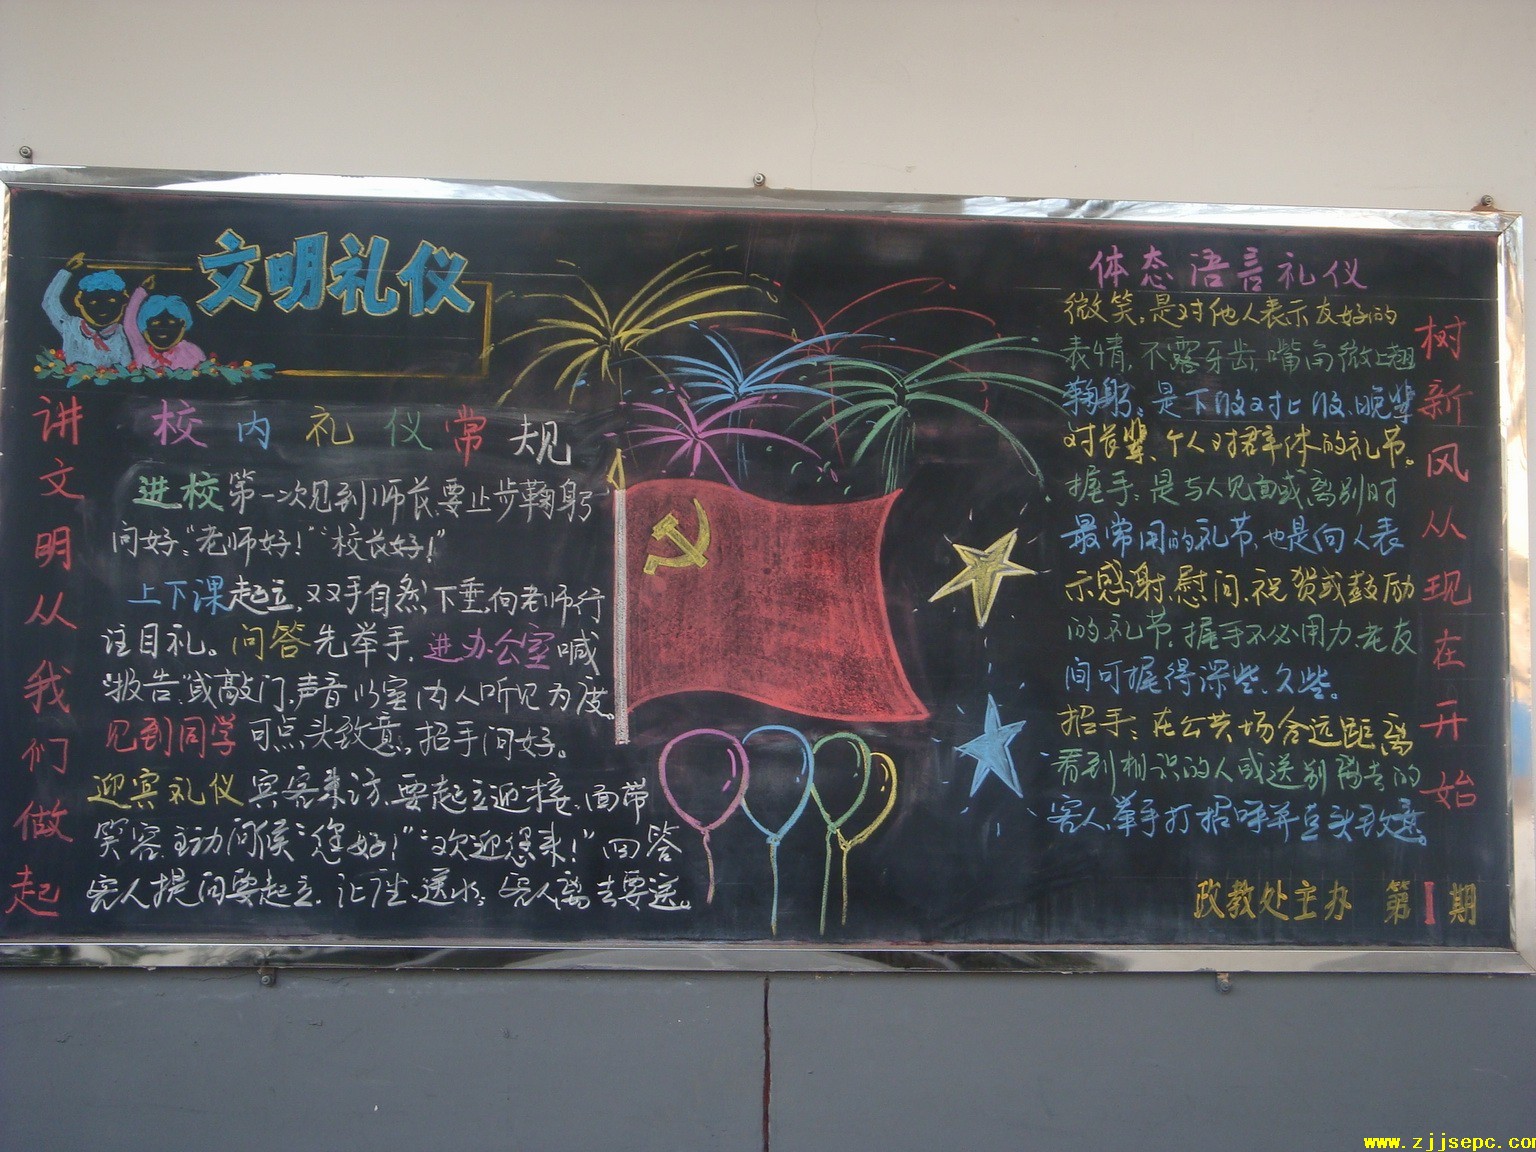 文明礼仪
讲文明从我们做起
校内礼仪常规
进校第一次见到师长,要止步鞠躬
问好:"老师好!""校长好!"
上下课起立,双手自然下垂,向老师行
注目礼。问答先举手,进办公室喊
"报告"或敲门,声音以室内人听见为度。
见到同学可点头致意,招手问好。
迎宾礼仪宾客来访,要起立迎接,面带
笑容,主动问候"您好!""欢迎您来!"回答
客人提问要起立,让座、送水;客人离去要送。
体态语言礼仪
微笑:是对他人表示友好的
表情,不露牙齿,嘴角微上翘
鞠躬:是下级对上级、晚辈
对长辈、个人对群体的礼节。
握手:是与人见面或离别时
最常用的礼节,也是向人表
示感谢、慰问、祝贺或鼓励
的礼节,握手不必用力,老友
间可握得深些、久些。
招手:在公共场合远距离
看到相识的人或送别离去的
客人,举手打招呼并点头致意。
树新风从现在开始
政教处主办 第1期
www.zjjsepc.com